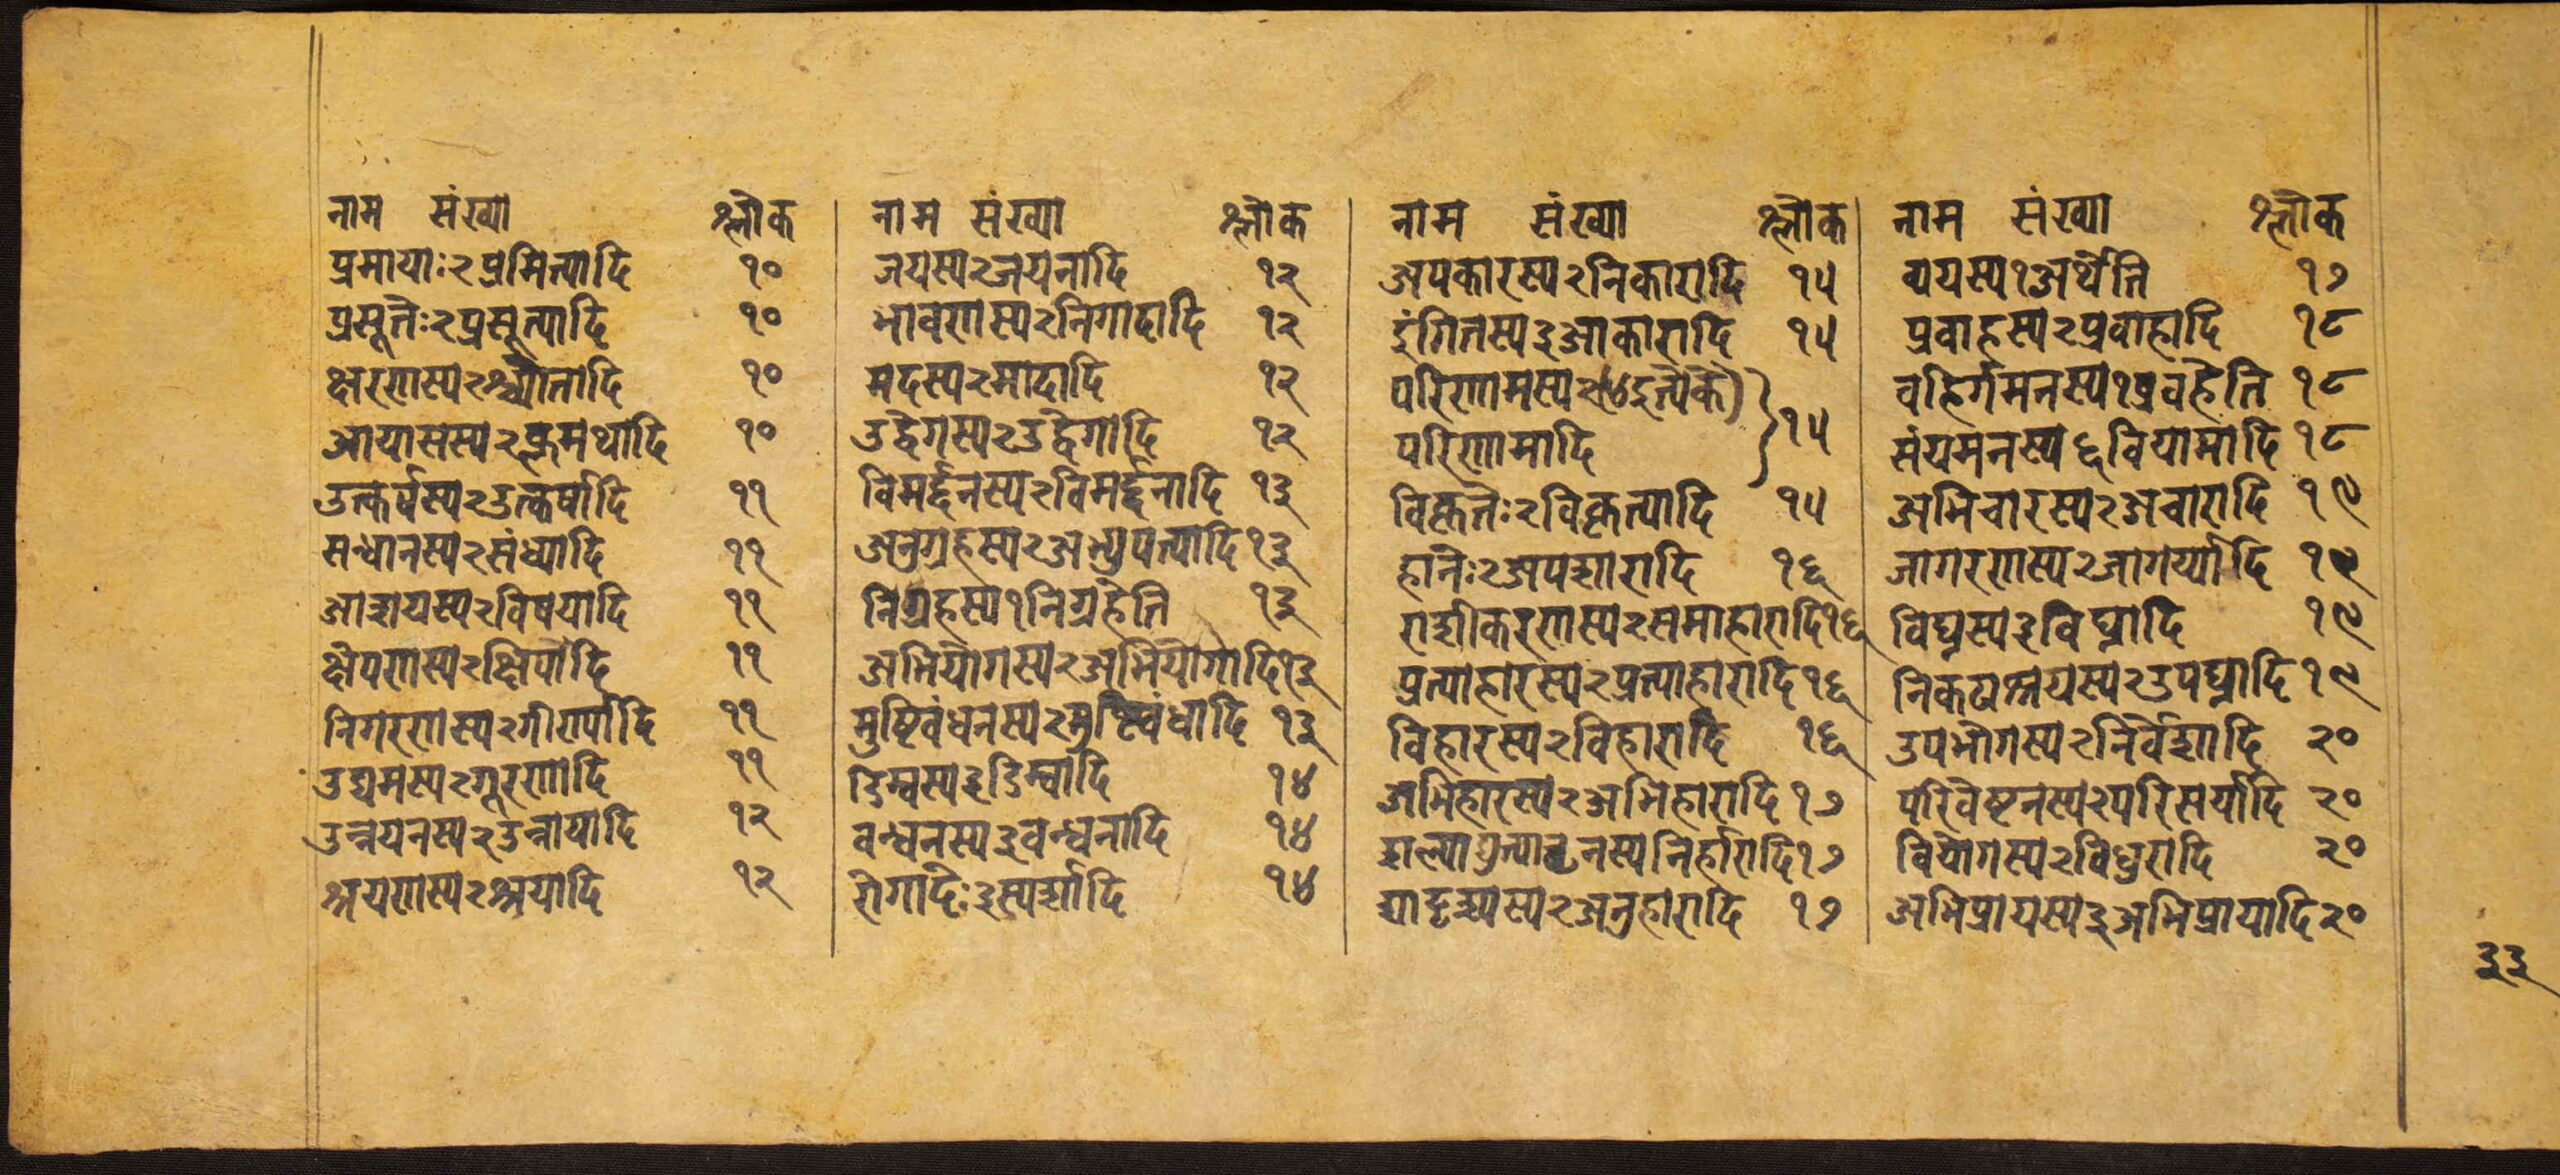 नाम संख्या श्लोक
प्रमायाः२प्रमित्यादि १०
प्रसूतेः२प्रसूत्यादि १०
क्षरणस्य२श्च्योतादि १०
आयासस्य२क्लमथादि १०
उत्कर्षस्य२उत्कर्षादि ११
सन्धानस्य२संध्यादि ११
आशयस्य२विषयादि ११
क्षेपणस्य२क्षिपादि ११
निगरणस्य२गीर्णादि ११
उद्यमस्य२गूरणादि ११
उन्नयनस्य२उन्नायादि १२
श्रयणस्य२श्रयादि १२
नाम संख्या श्लोक
जयस्य२जयनादि १२
भावणस्य२निगादादि १२
मदस्य२मादादि १२
उद्वेगस्य२उद्वेगादि १२
विमर्द्दनस्य२विमर्द्दनादि १३
अनुग्रहस्य२अभ्युपत्यादि१३
निग्रहस्य१निग्रहेति १३
अभियोगस्य२अभियोगादि१३
मुष्टिवंधनस्य२मुष्टिवंधादि १३
डिम्वस्य३डिम्वादि १४
वन्धनस्य३वन्धनादि १४
रोगादेः३स्पर्शादि १४
नाम संख्या श्लोक
अपकारस्य२निकारादि १५
इंगितस्य३आकारादि १५
परिणामस्य२(४इत्येके)
परिणामादि १५
विकृतेः२विकृत्यादि १५
हानेः२अपहारादि १६
राशीकरणस्य२समाहारादि१६
प्रत्याहारस्य२प्रत्याहारादि१६
विहारस्य२विहारादि १६
अभिहारस्य२अभिहारादि १७
शल्या निर्हारादि१७
सादृश्यस्य२अनुहारादि १७
नाम संख्या श्लोक
व्ययस्य१अर्थेति १७
प्रवाहस्य२प्रवाहादि १८
वहिर्गमनस्य१प्रवहेति १८
संयमनस्य६वियामादि १८
अभिचारस्य२अचारादि १९
जागरणस्य२जागर्य्यादि १९
विघ्नस्य३विघ्नादि १९
निकटाश्रयस्य२उपघ्नादि१९
उपभोगस्य२निर्वेशादि २०
परिवेष्टनस्य२परिसर्यादि २०
वियोगस्य२विधुरादि २०
अभिप्रायस्य३अभिप्रायादि२०
३३